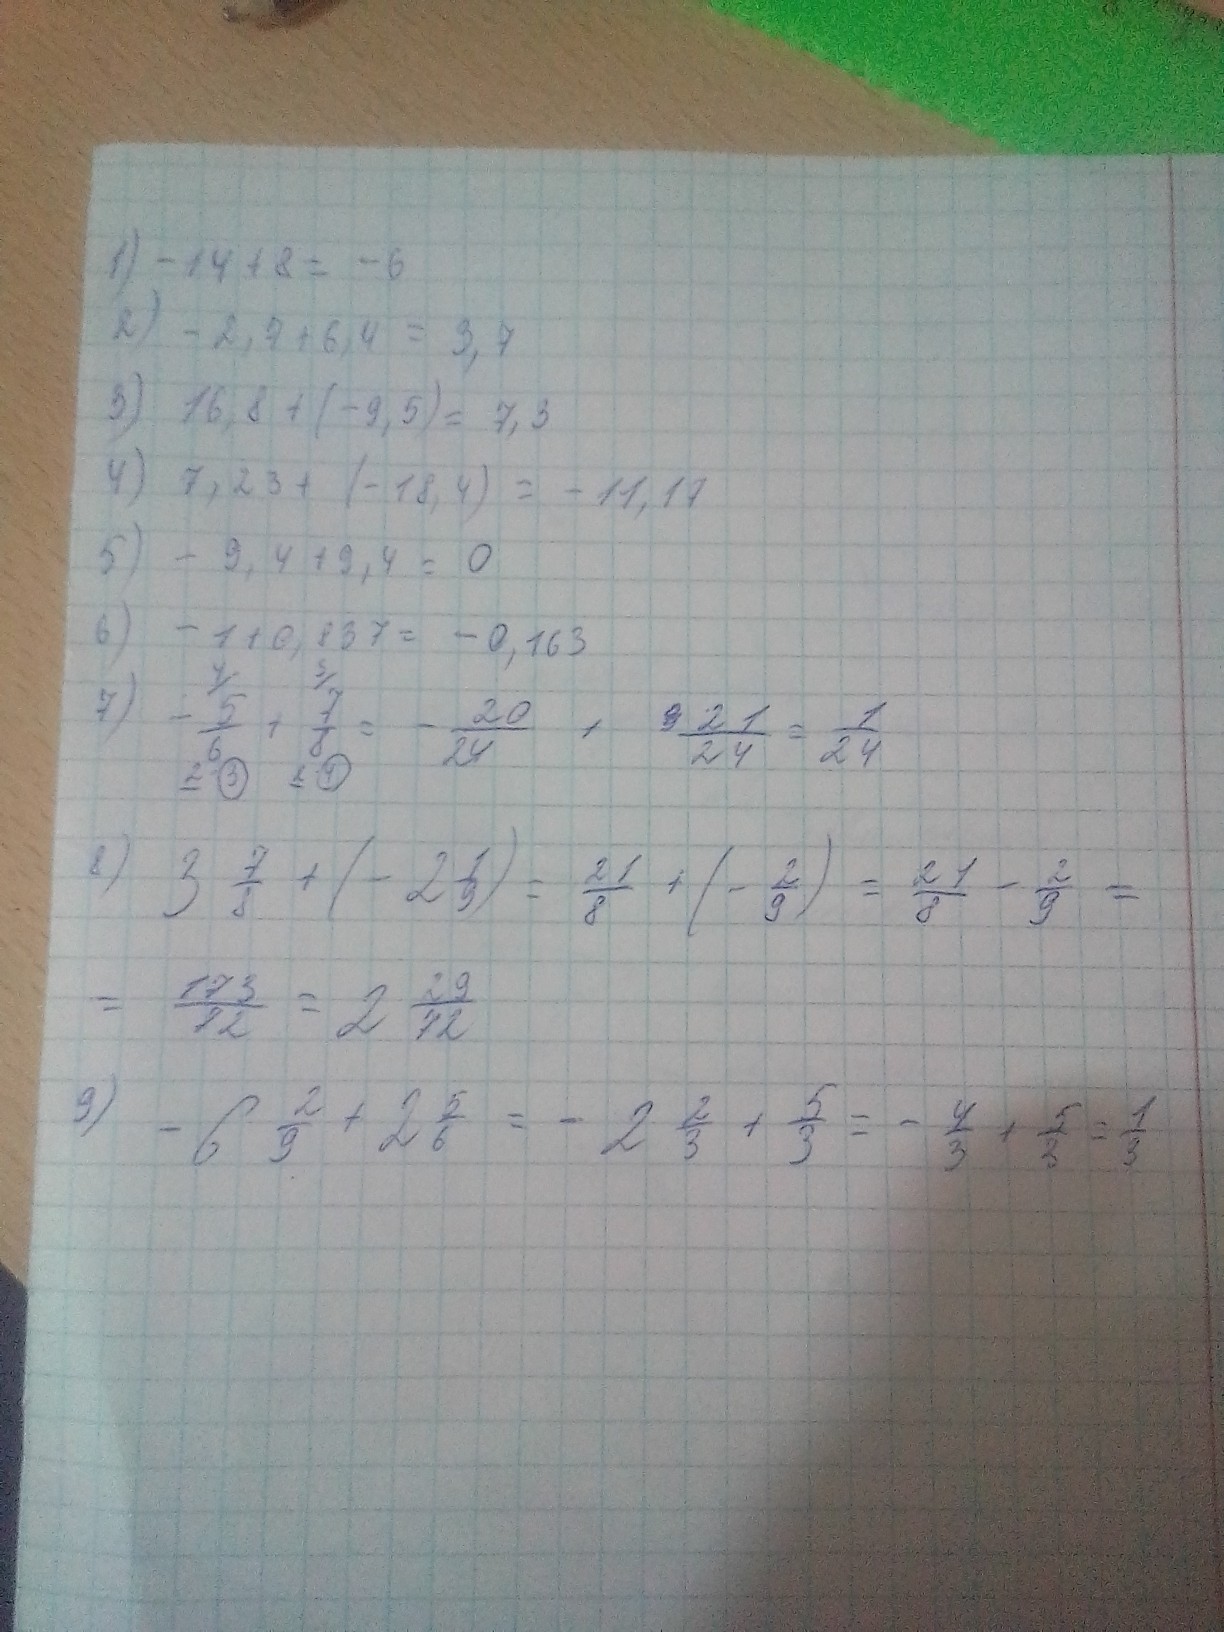 1) -14+8= -6
2) -2,7+6,4 = 3,7
3) 16,8+(-9,5)= 7,3
4) 7,23+ (-18,4) = -11,17
5) -9,4+9,4= 0
6) -1+0,837= -0,163
4/ 3/
7) -5/6 + 7/8 = -20/24 + 21/24 = 1/24
2 3 2 4
8) 3 7/8 + (-2 1/9) = 21/8 + (-2/9) = 21/8 - 2/9 =
= 173/72 = 2 29/72
9) -6 2/9 + 2 5/6 = -2 2/3 + 5/3 = -4/3 + 5/3 = 1/3